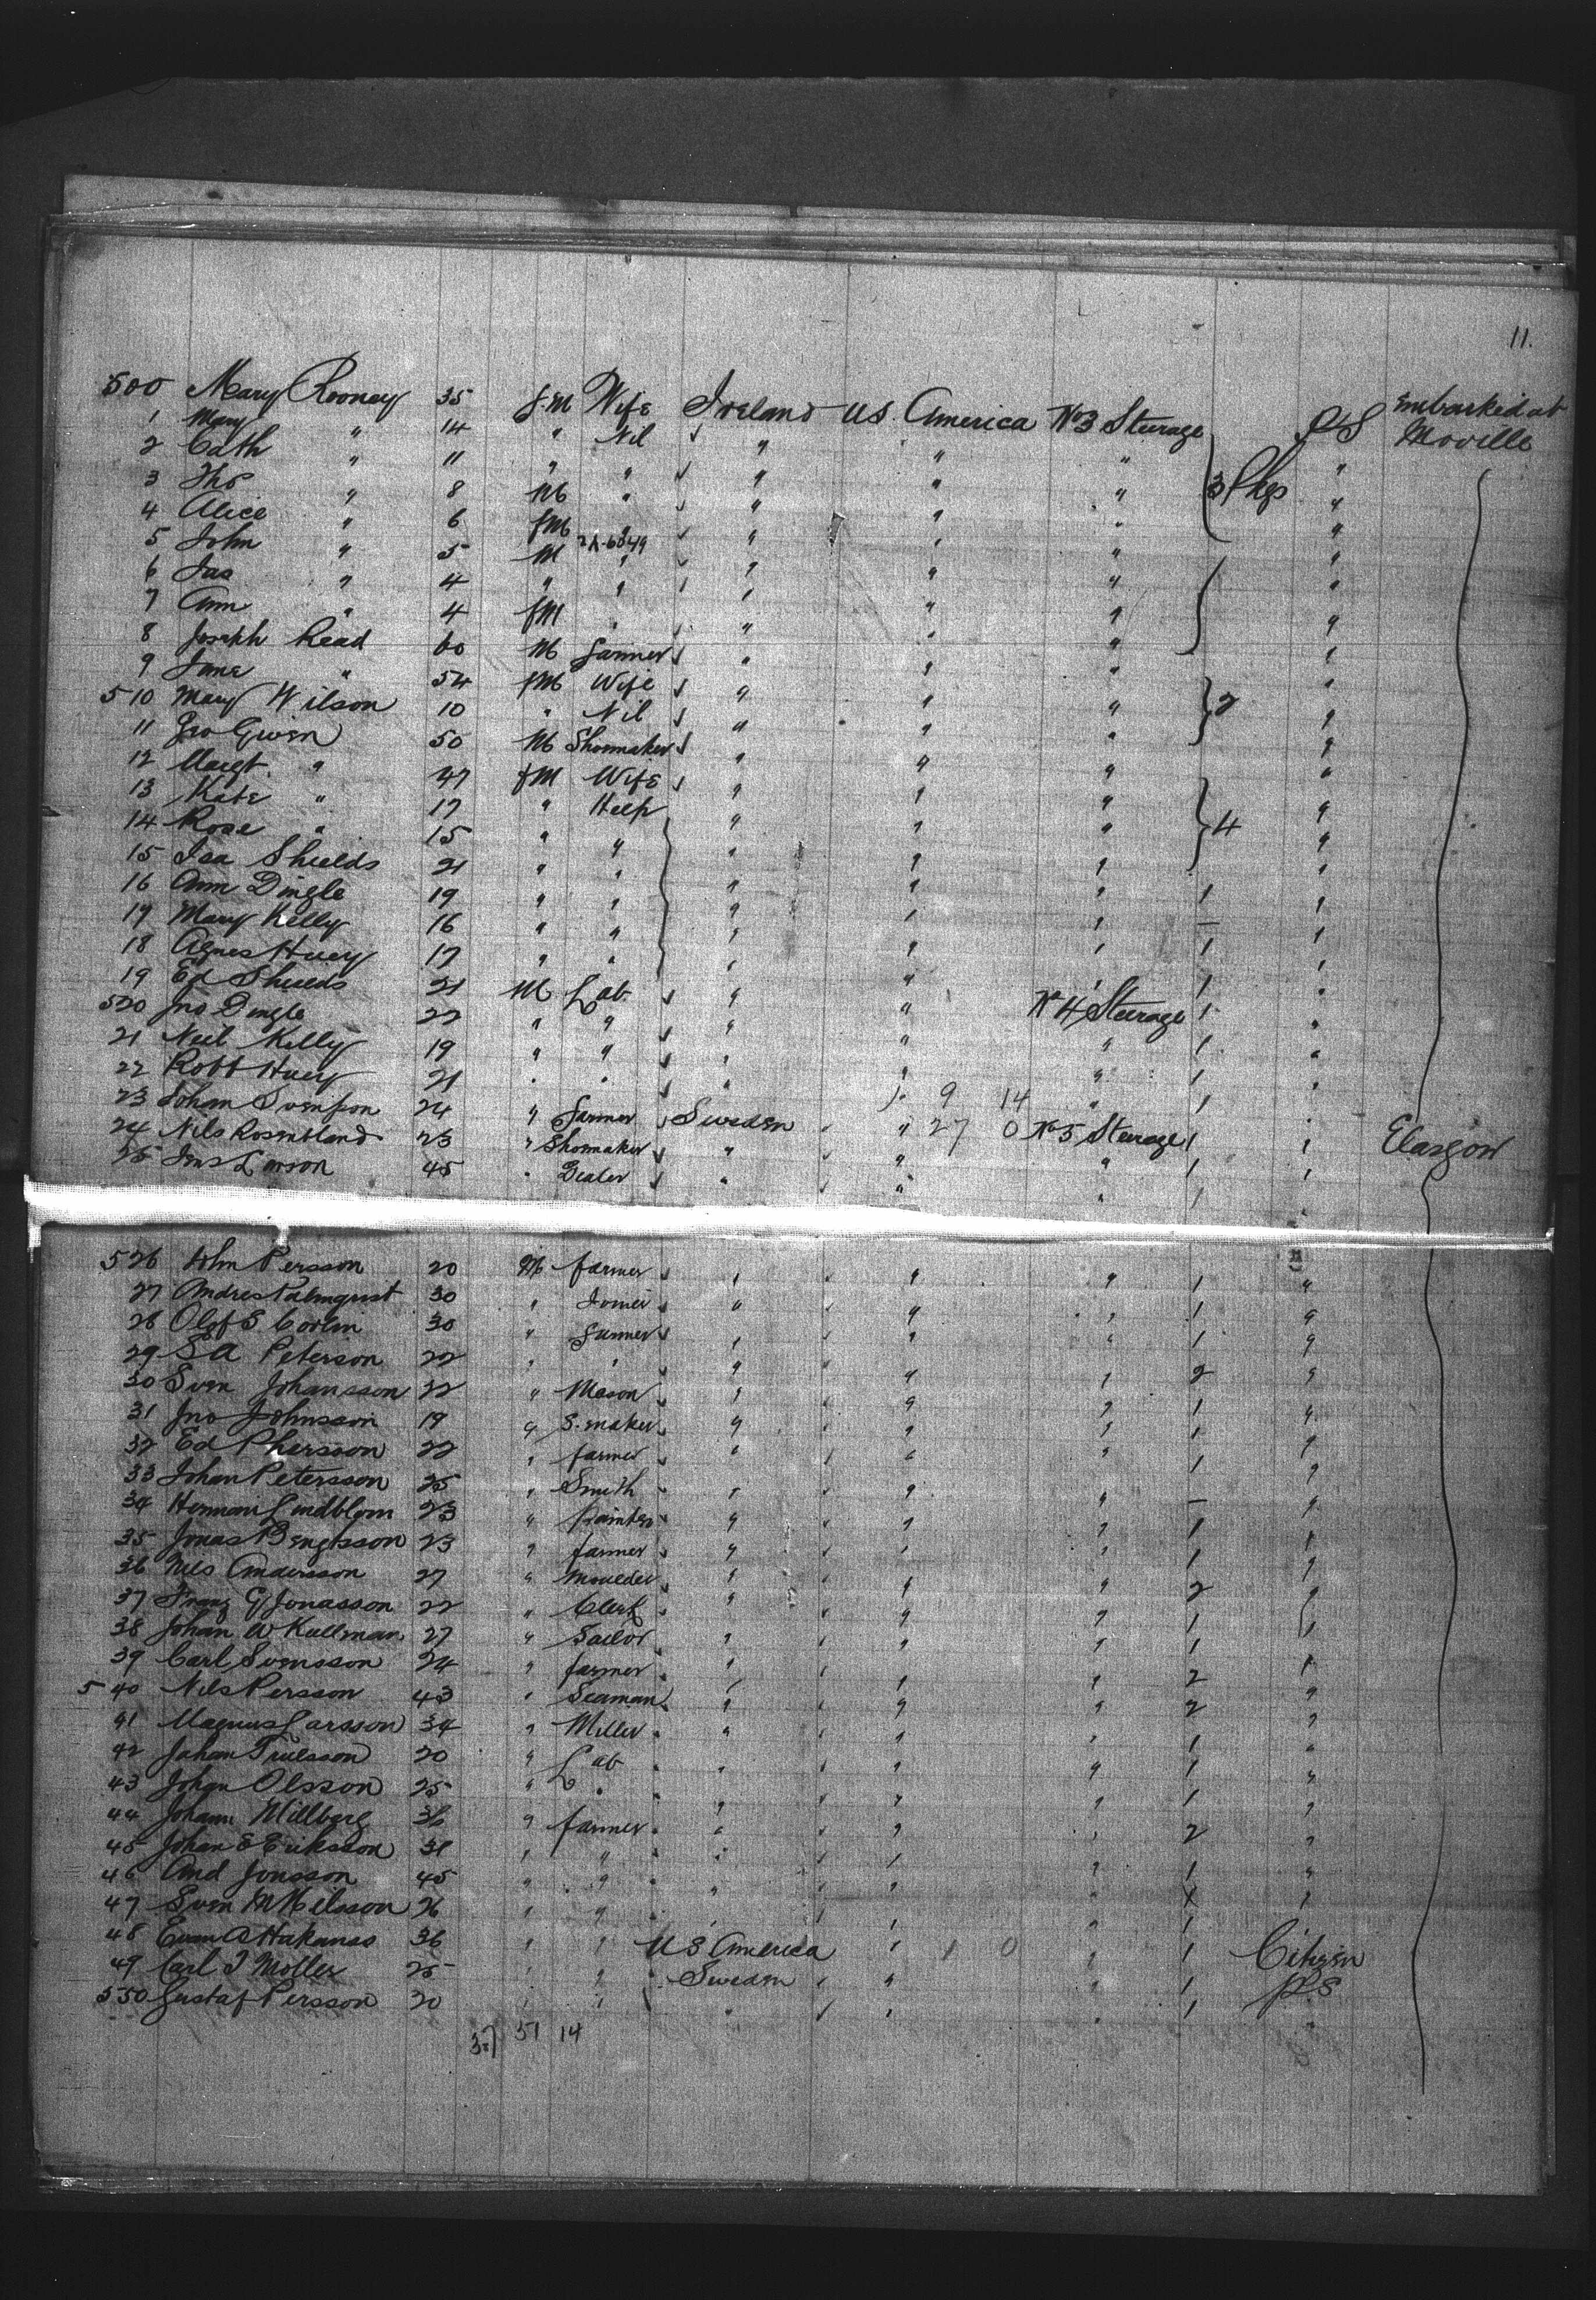 11.
500 Mary Rooney 35 f.M Wife Ireland U.S. America No 3 Steerage P S Embarked at Moville
1 Mary " 14 " Nil " " "
2 Cath " 11 " " " " " 3 Pkgs "
3 Tho " 8 M " " " " "
4 Alice " 6 fM " " " "
5 John " 5 M 2A-6849 " " " "
6 Jas " 4 " " " " " "
7 Ann " 4 fM " " " " "
8 Joseph Read 60 M Farmer " " " "
9 Jane " 54 fM Wife " " " 2 "
510 Mary Wilson 10 " Nil " " " "
11 Geo Given 50 M Shoemaker " " " "
12 Margt. " 47 fM Wife " " " "
13 Kate " 17 " Help " " " 4 "
14 Rose " 15 " " " " " "
15 Isa Shields 21 " " " " " 1 "
16 Ann Dingle 19 " " " " " — "
17 Mary Kelly 16 " " " " " 1 "
18 Agnes Huey 17 " " " " " 1 "
19 Ed Shields 21 M Lab " " No 4 Steerage 1 "
520 Jno Dingle 22 " " " " " 1 "
21 Neil Kelly 19 " " " " " 1 "
22 Robt Huey 21 " " " " 9 14 " 1 "
23 Johan Svensson 24 " Farmer Sweden " 27 0 No 5 Steerage 1 " Glasgow
24 Nils Rosenbland 23 " Shoemaker " " " 1 "
25 Jns Larson 45 " Dealer " " " 1 "
526 John Persson 20 M farmer " " " 1 "
27 Andres Palmqvist 30 " Joiner " " " 1 "
28 Olof S. 30 " Farmer " " " 1 "
29 S A Peterson 22 " " " " " 2 "
30 Sven Johansson 22 " Mason " " " 1 "
31 Jno Johnsson 19 " S. maker " " " 1 "
32 Ed Phersson 22 " farmer " " " 1 "
33 Johan Petersson 25 " Smith " " " — "
34 Herman Lindblom 23 " Painter " " " 1 "
35 Jonas Bengtsson 23 " farmer " " " 1 "
36 Nils Andersson 27 " Moulder " " " 2 "
37 Franz G Jonasson 22 " Clerk " " " 1 "
38 Johan W Kullman 27 " Sailor " " " 1 "
39 Carl Svensson 24 " farmer " " " 2 "
540 Nils Persson 43 " Seaman " " " 2 "
41 Magnus Larsson 34 " Miller " " " 1 "
42 Johan Truesson 20 " Lab " " " 1 "
43 Johan Olsson 25 " " " " " 1 "
44 Johann Millberg 36 " farmer " " " 2 "
45 Johan E Eriksson 31 " " " " " 1 "
46 And Jonsson 45 " " " " " 1 "
47 Sven M Nilsson 26 " " " " " 1 "
48 Evan A Hakanss 36 " " U S America " 1 0 " 1 Citizen
49 Carl J Moller 25 " " Sweden " " 1 P S
550 Gustaf Persson 20 " " " " " 1 "
37 51 14